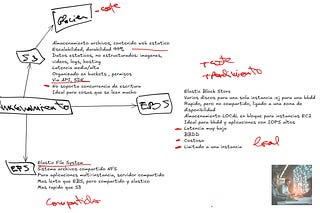 Glacier
-coste
S3
Almacenamiento archivos, contenido web estatico
Escalabilidad, durabilidad 99%
Datos estaticos, no estructurados: imagenes,
videos, logs, hosting
Latencia media/alta
Organizado en buckets, permisos
Via API, SDK
No soporta concurrencia de escritura
Ideal para cosas que se lean mucho
+coste
+rendimiento
Almacenamiento
EBS
Elastic Block Store
Varios discos para una sola instancia .ej para una bbdd
Rapido, pero no compartido, ligado a una zona de
disponibilidad
Almacenamiento LOCAL en bloque para instancias EC2
Ideal para bbdd y aplicaciones con IOPS altos
Latencia muy baja
BBDD
Costoso
Limitado a una instancia
local
EFS
Elastic File System
Sistema archivos compartido NFS
Para aplicaciones multi-instancia, servidor compartido
Mas lento que EBS, pero compartido y elastico
Mas rapido que S3
Compartido